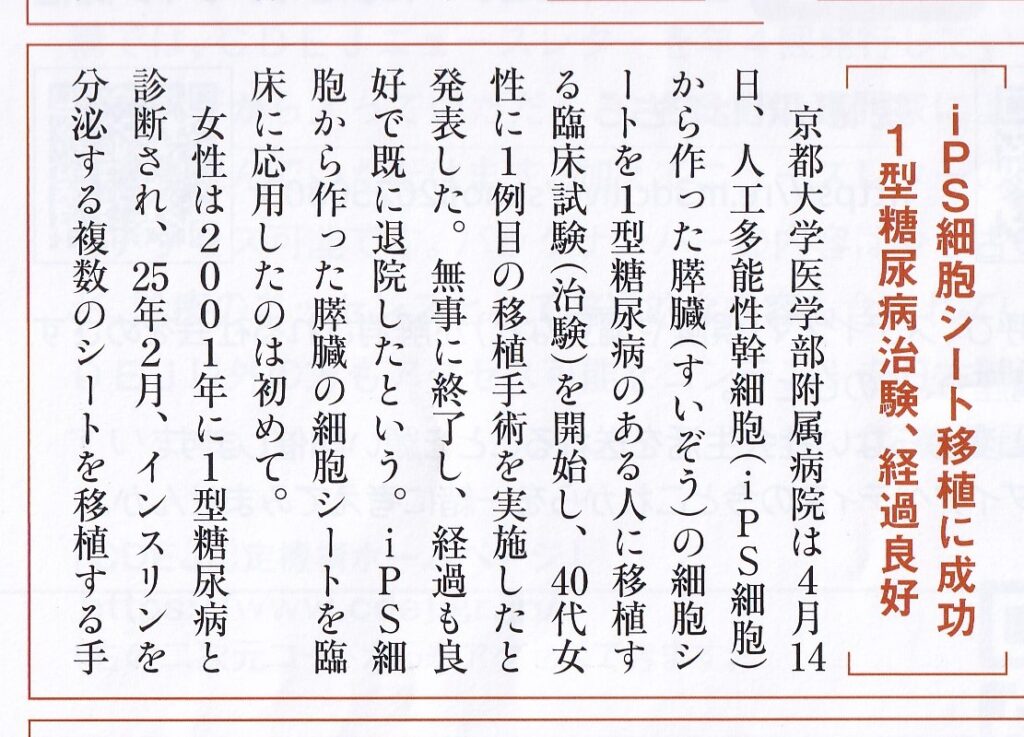 iPS細胞シート移植に成功
1型糖尿病治験、経過良好
京都大学医学部附属病院は4月14
日、人工多能性幹細胞(iPS細胞)
から作った膵臓(すいぞう)の細胞シ
ートを1型糖尿病のある人に移植す
る臨床試験(治験)を開始し、40代女
性に1例目の移植手術を実施したと
発表した。無事に終了し、経過も良
好で既に退院したという。iPS細
胞から作った膵臓の細胞シートを臨
床に応用したのは初めて。
女性は2001年に1型糖尿病と
診断され、25年2月、インスリンを
分泌する複数のシートを移植する手